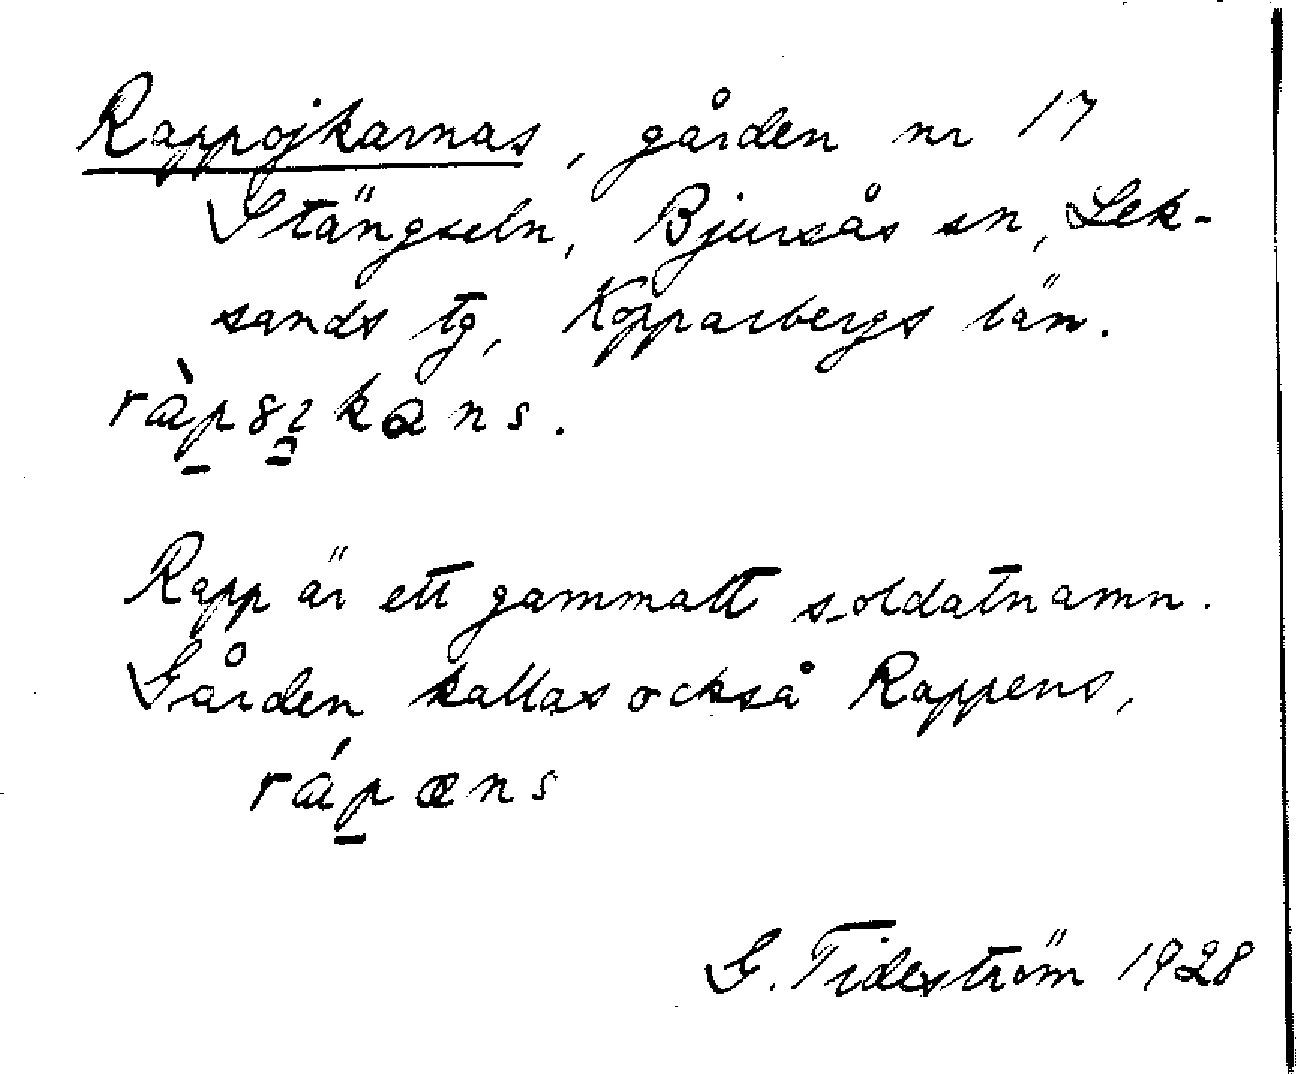 Rappojkarnas, gården nr 17
Stängseln, Bjursås sn, Lek-
sands tg, Kopparbergs län.
Rapp är ett gammalt soldatnamn.
Gården kallas också Rappens,
rápæns
G. Tideström 1928